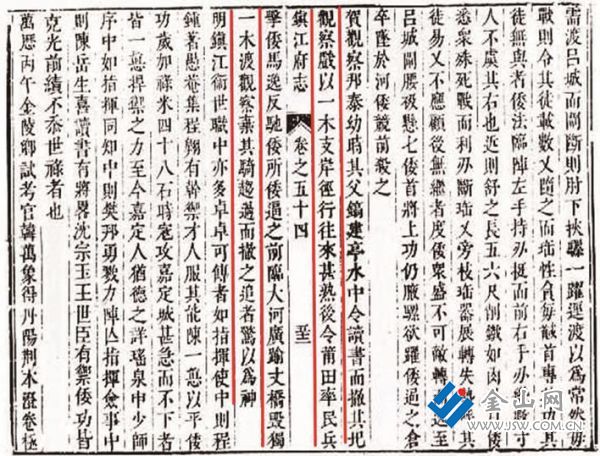 需渡呂城而閘斷則肘下挾騾一躍逕渡以爲常然毋
戰則令其徒載數又隨之而珤性貪每馘首專功其
徒無與者倭法臨陣左手持刅挺而前右手刅數寸
人不虞其右也近則舒之長五六尺削鐵如肉使
悉衆殊死戰而利刅斷珤又旁枝珤器展轉失其
徒易又不應顧後無繼者度倭衆盛不可敵轉至
呂城閘腰級懸七倭首將上功仍騾欲躍倭逼之倉
卒墮於河倭競前殺之
賀觀察邦泰幼時其父鎬建亭水中令讀書而撤其圯
觀察戲以一木支岸徑行往來甚熟後令莆田率民兵
鎮江府志 卷之五十四 至
擊倭馬逸反馳倭所倭逼之前臨大河廣踰丈橋毀獨
一木渡觀察棄其騎趨過而撤之追者驚以爲神
明鎮江衛世職中亦多卓卓可傳者如指揮使中則程
鍾著愚菴集程翱有幹禦才人服其能陳一慤以平倭
功歲加祿米四十八石時寇攻嘉定城甚急而不下者
皆一慤捍禦之力至今嘉定人猶德之詳瑤泉申少師
序中如指揮同知中則樊邦勇戮力陣亾指揮僉事中
則陳岳生喜讀書有將畧沈宗玉王世臣有禦倭功皆
克光前績不忝世祿者也
萬曆丙午金陵鄉試考官韓萬象得丹陽荆本澄卷極
金山网